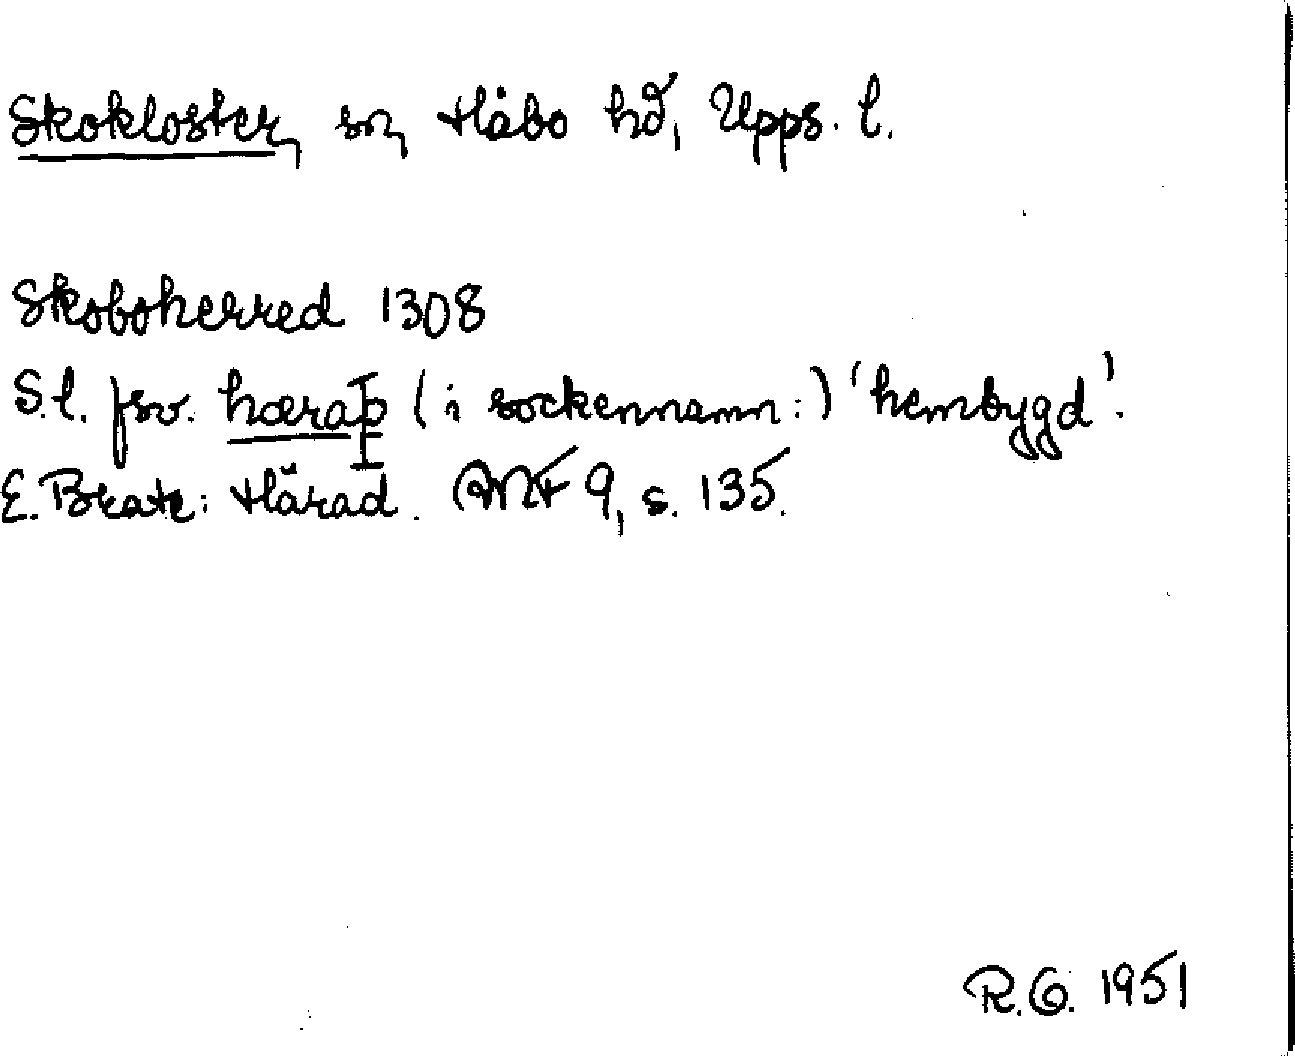 Skokloster, sn, Håbo hd, Upps. l.
Skoboherred 1308
S.l. fsv. hæraþ (i sockennamn:) 'hembygd'.
E. Brate: Härad. ANF 9, s. 135.
R.G. 1951